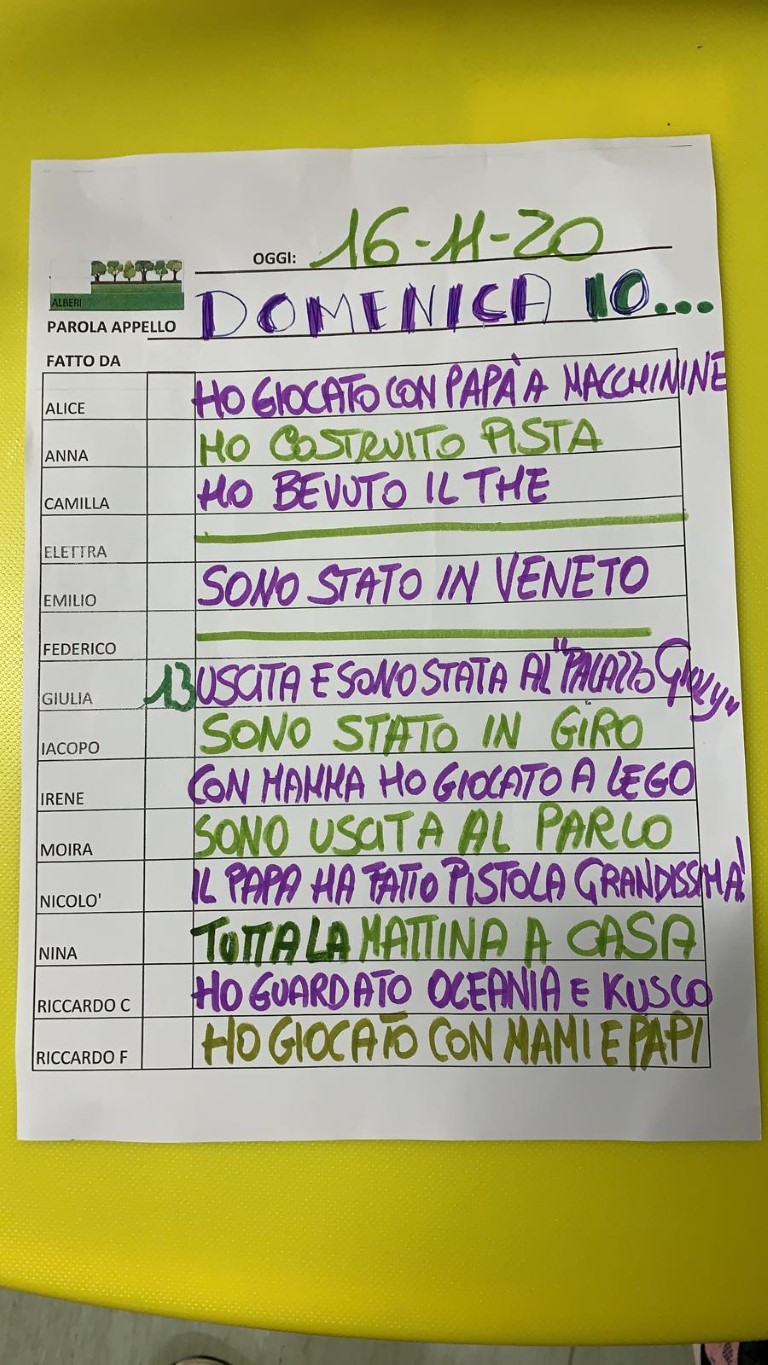 OGGI: 16-11-20
ALBERI
PAROLA APPELLO DOMENICA IO...
FATTO DA
ALICE HO GIOCATO CON PAPÀ A MACCHININE
ANNA HO COSTRUITO PISTA
CAMILLA HO BEVUTO IL THE
ELETTRA
EMILIO SONO STATO IN VENETO
FEDERICO
GIULIA 13 USCITA E SONO STATA AL "PALAZZO Giuly"
IACOPO SONO STATO IN GIRO
IRENE CON MAMMA HO GIOCATO A LEGO
MOIRA SONO USCITA AL PARCO
NICOLO' IL PAPA HA FATTO PISTOLA GRANDISSIMA!
NINA TUTTA LA MATTINA A CASA
RICCARDO C HO GUARDATO OCEANIA E KUSCO
RICCARDO F HO GIOCATO CON MAMI E PAPI